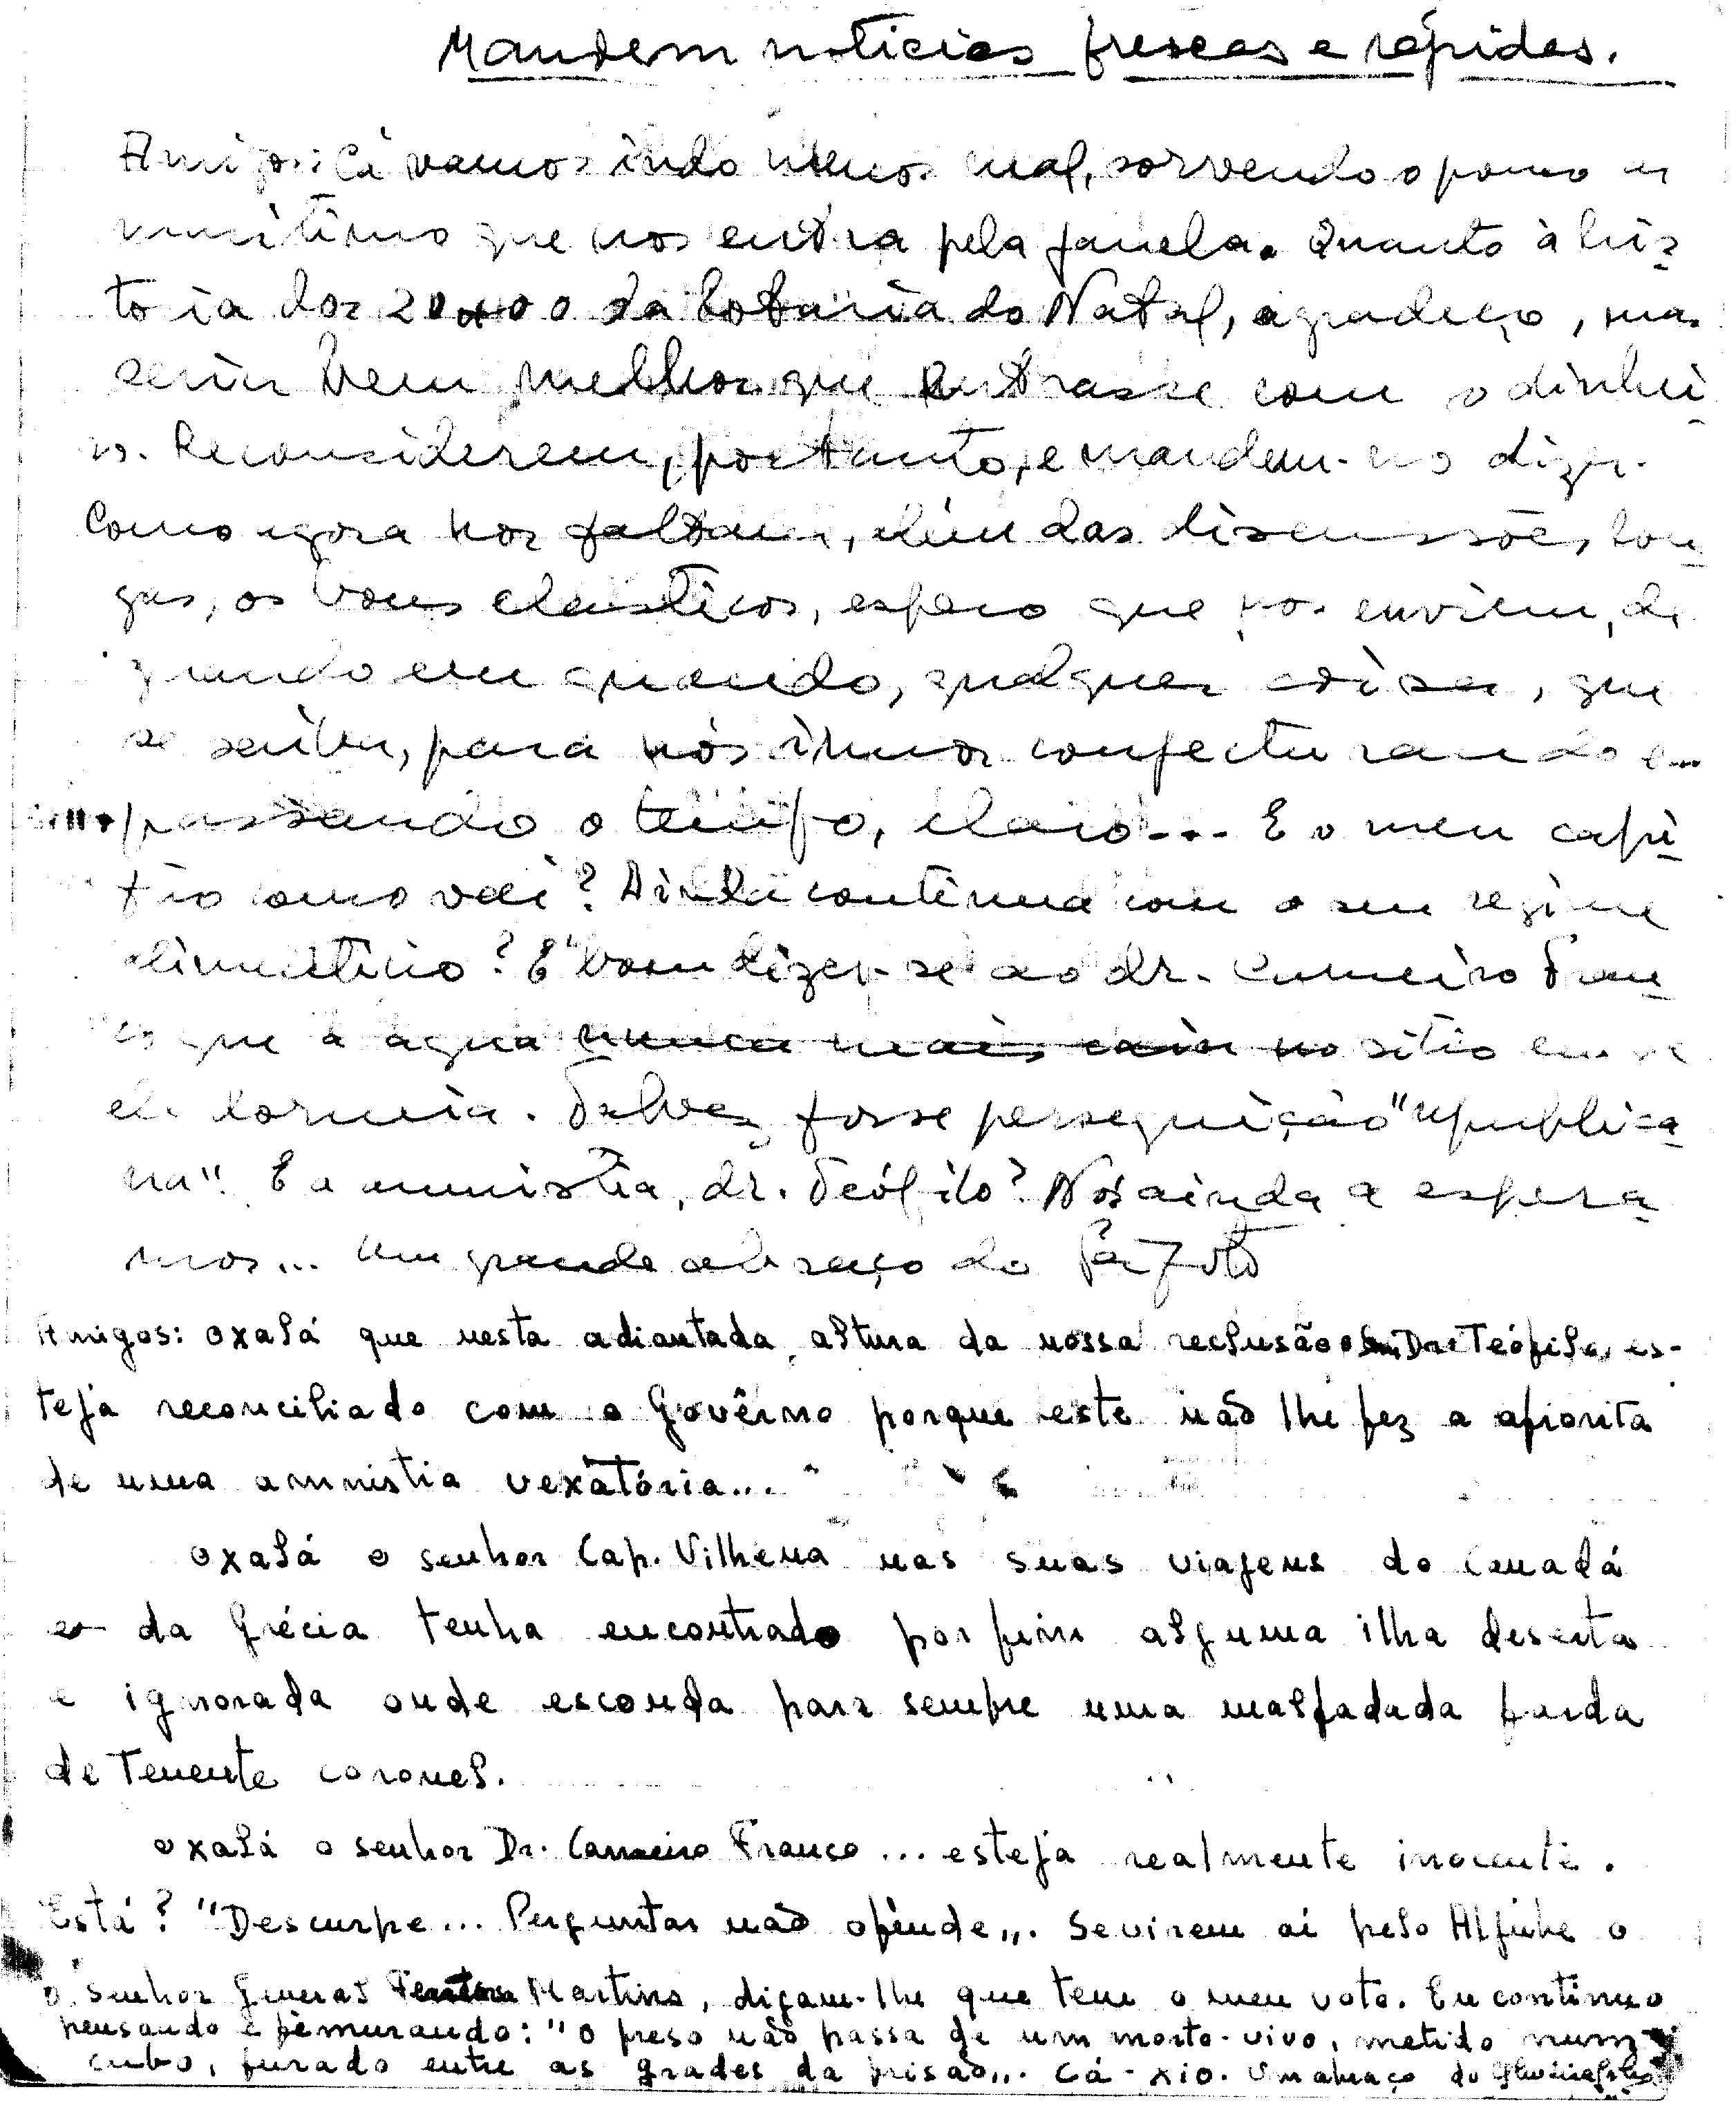 Mandem noticias frescas e rápidas.
Amigos: Cá vamos indo menos mal, sorvendo o pouco ar
maritimo que nos entra pela janela. Quanto à his-
toria dos 20$00 da lotaria do Natal, agradeço, mas
seria bem melhor que entrasse com o dinhei-
ro. Reconsiderem, portanto, e mandem-no dizer.
Como agora nos faltam, além das discussões lon-
gas, os bons elasticos, espero que nos enviem, de
quando em quando, qualquer coisa, que
se saiba, para nós irmos conjecturando e...
passando o tempo, claro... E o meu capi-
tão como vai? Ainda continua com o seu regime
alimenticio? É bom dizer-se ao dr. Carneiro Fran-
co que a agua nunca mais caiu no sitio em que
ele dormia. Talvez fosse perseguição "republica-
na". E a amnistia, dr. Teófilo? Nós ainda a espera-
mos... Um grande abraço do
Amigos: oxalá que nesta adiantada altura da nossa reclusão o Snr. Dr. Teófilo es-
teja reconciliado com o Govêrno porque este não lhe fez a afronta
de uma amnistia vexatória...
oxalá o senhor Cap. Vilhena nas suas viagens do Canadá
e da Grécia tenha encontrado por fim alguma ilha deserta
e ignorada onde esconda para sempre uma malfadada farda
de Tenente coronel.
oxalá o senhor Dr. Carneiro Franco... esteja realmente inocente.
Está? "Descurpe... Perguntar não ofende". Se virem aí pelo Aljube o
o senhor general Ferreira Martins, digam-lhe que tem o meu voto. Eu continuo
pensando e murmurando: "o preso não passa de um morto-vivo, metido num
cubo, furado entre as grades da prisão". Cá-xio. Um abraço do